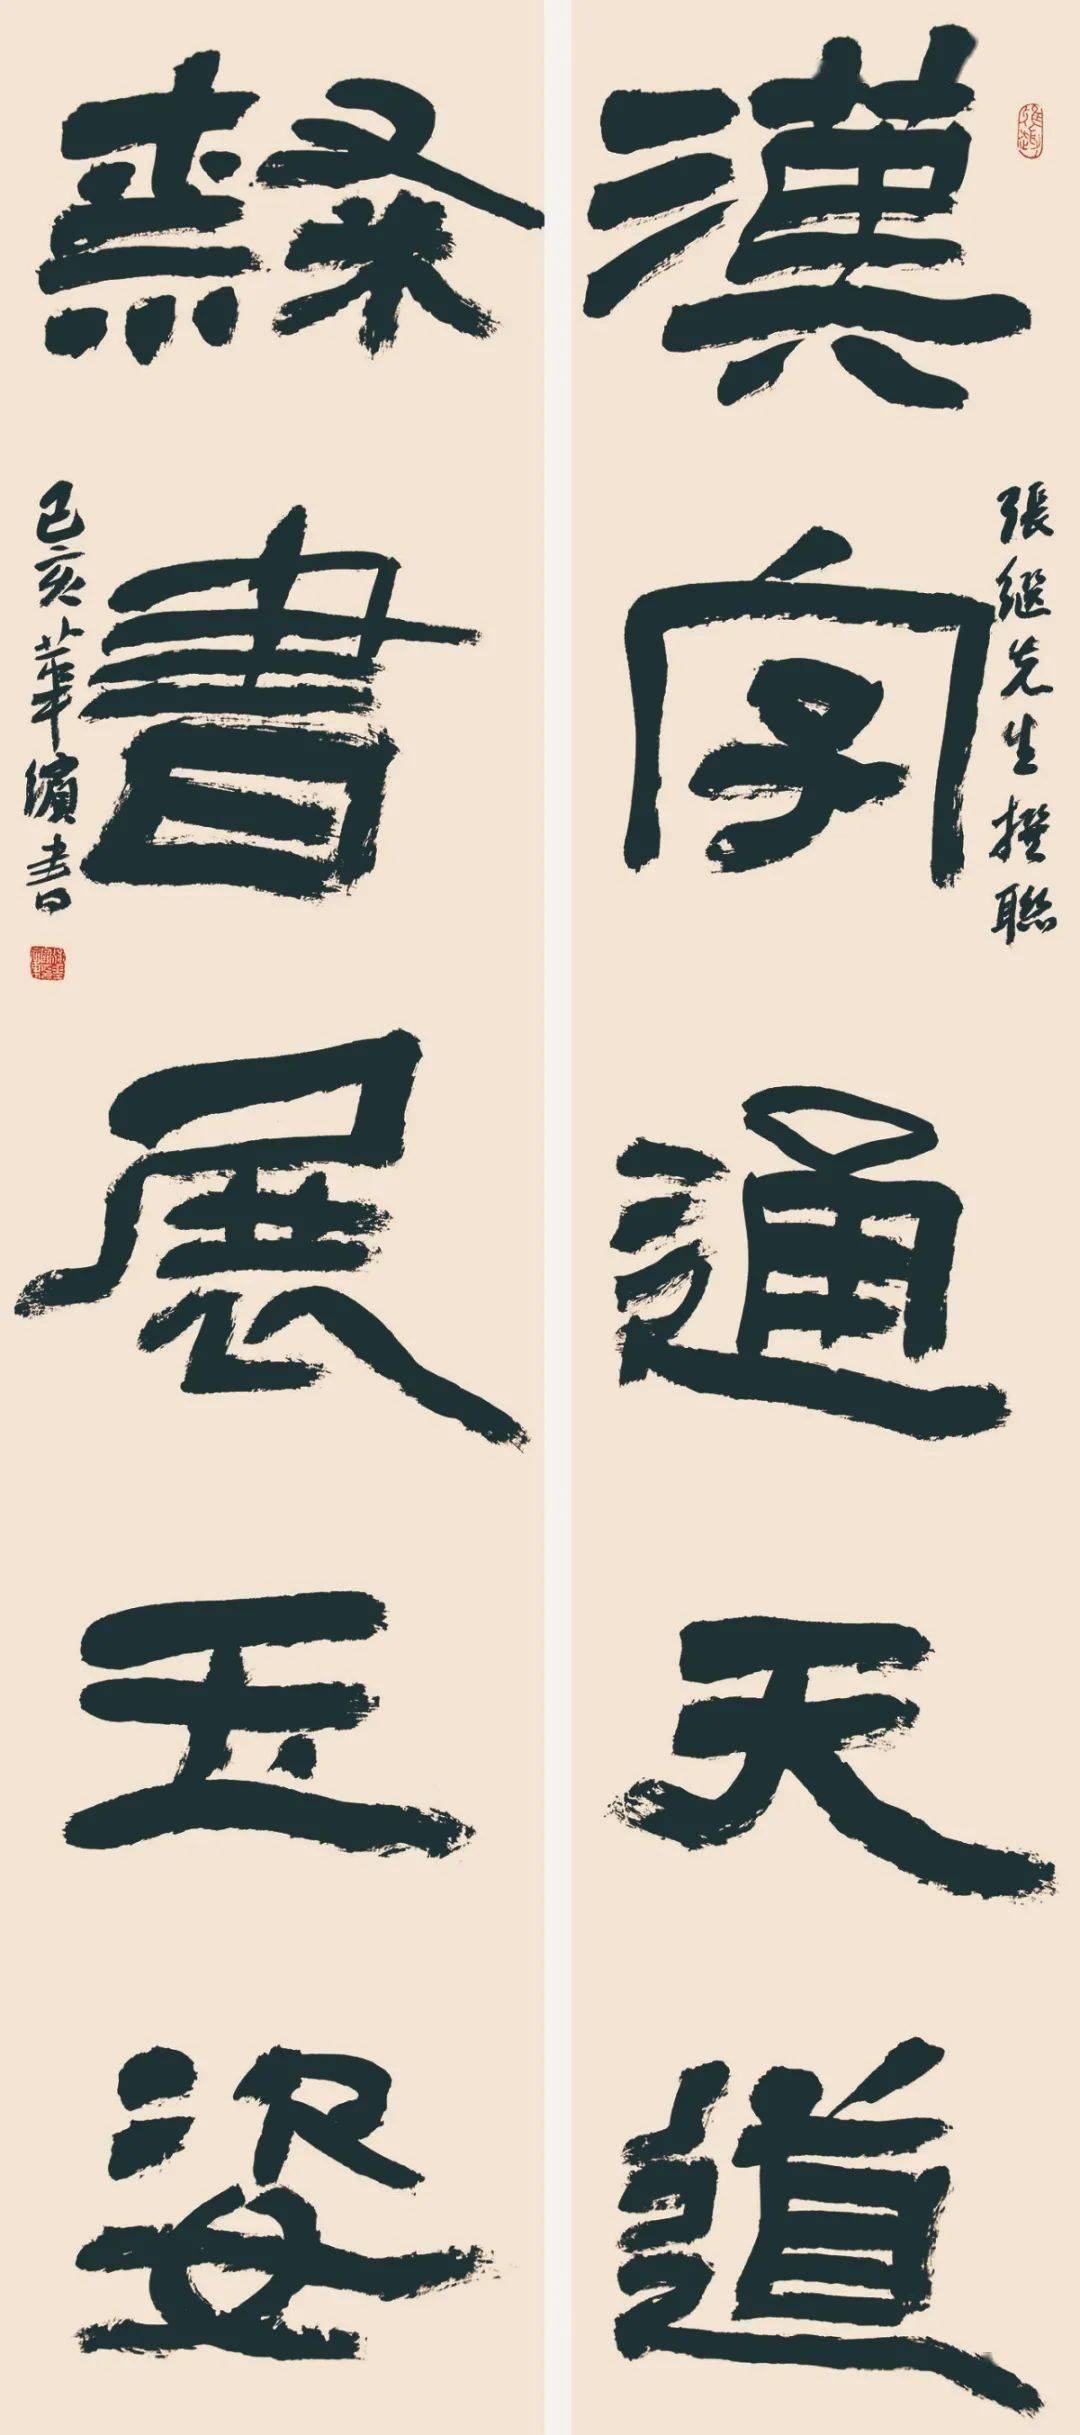 漢字通天道
張继先生撰聯
隸書展玉姿
己亥華繽書